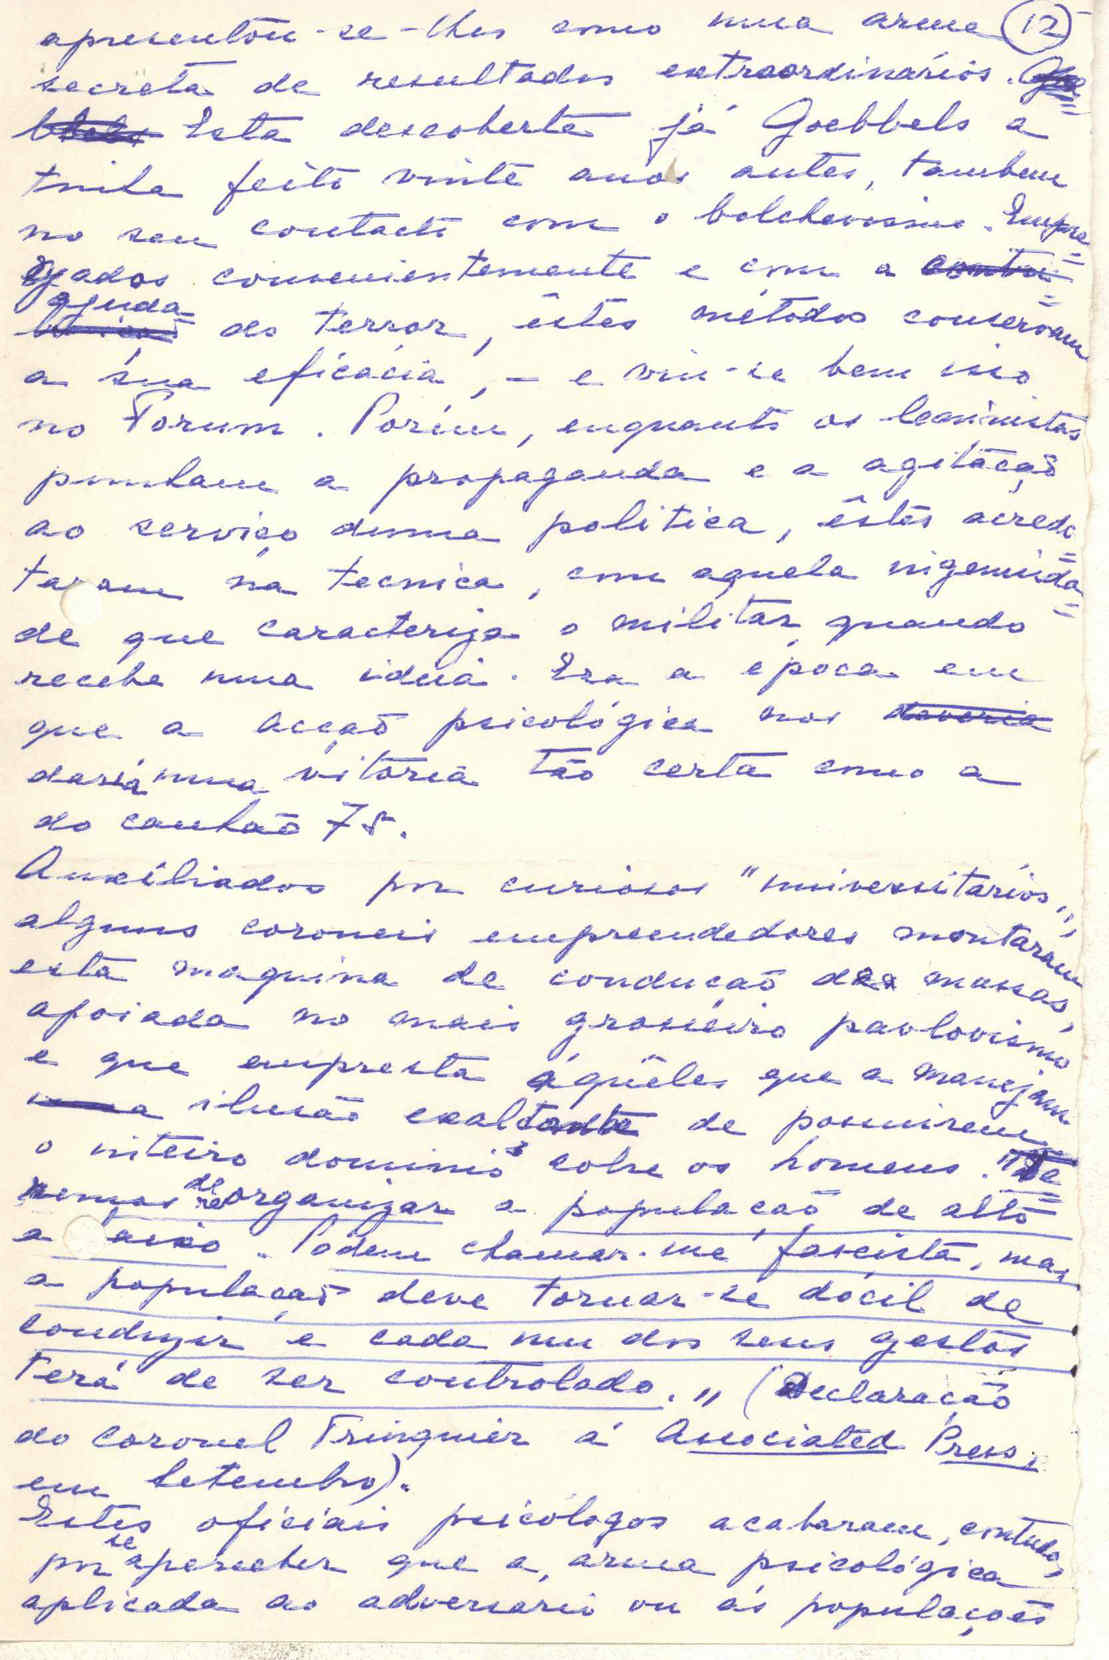 apresentou-se-lhes como uma arma 12
secreta de resultados extraordinários.
Esta descoberta já Goebbels a
tinha feito vinte anos antes, tambem
no seu contacto com o bolchevismo. Empre=
gados convenientemente e com a
ajuda
do terror, êstes métodos conservam
a sua eficácia, – e viu-se bem isso
no Forum. Porém, enquanto os leninistas
punham a propaganda e a agitação
ao serviço duma politica, êstes acredi=
taram na tecnica, com aquela ingenuida=
de que caracteriza o militar quando
recebe uma ideia. Era a época em
que a acção psicológica nos deveria
daria uma vitória tão certa como a
do canhão 75.
Auxiliados por curiosos "universitários",
alguns coroneis empreendedores montaram
esta maquina de condução das massas,
apoiada no mais grosseiro pavlovismo
e que empresta áquêles que a manejam
a ilusão exaltante de possuirem
o inteiro dominio sobre os homens. "Te=
remos de reorganizar a população de alto
a baixo. Podem chamar-me fascista, mas
a população deve tornar-se dócil de
conduzir e cada um dos seus gestos
terá de ser controlado." (Declaração
do coronel Trinquier á Associated Press,
em Setembro).
Estes oficiais psicólogos acabaram, contudo,
por se aperceber que a arma psicológica
aplicada ao adversario ou ás populações